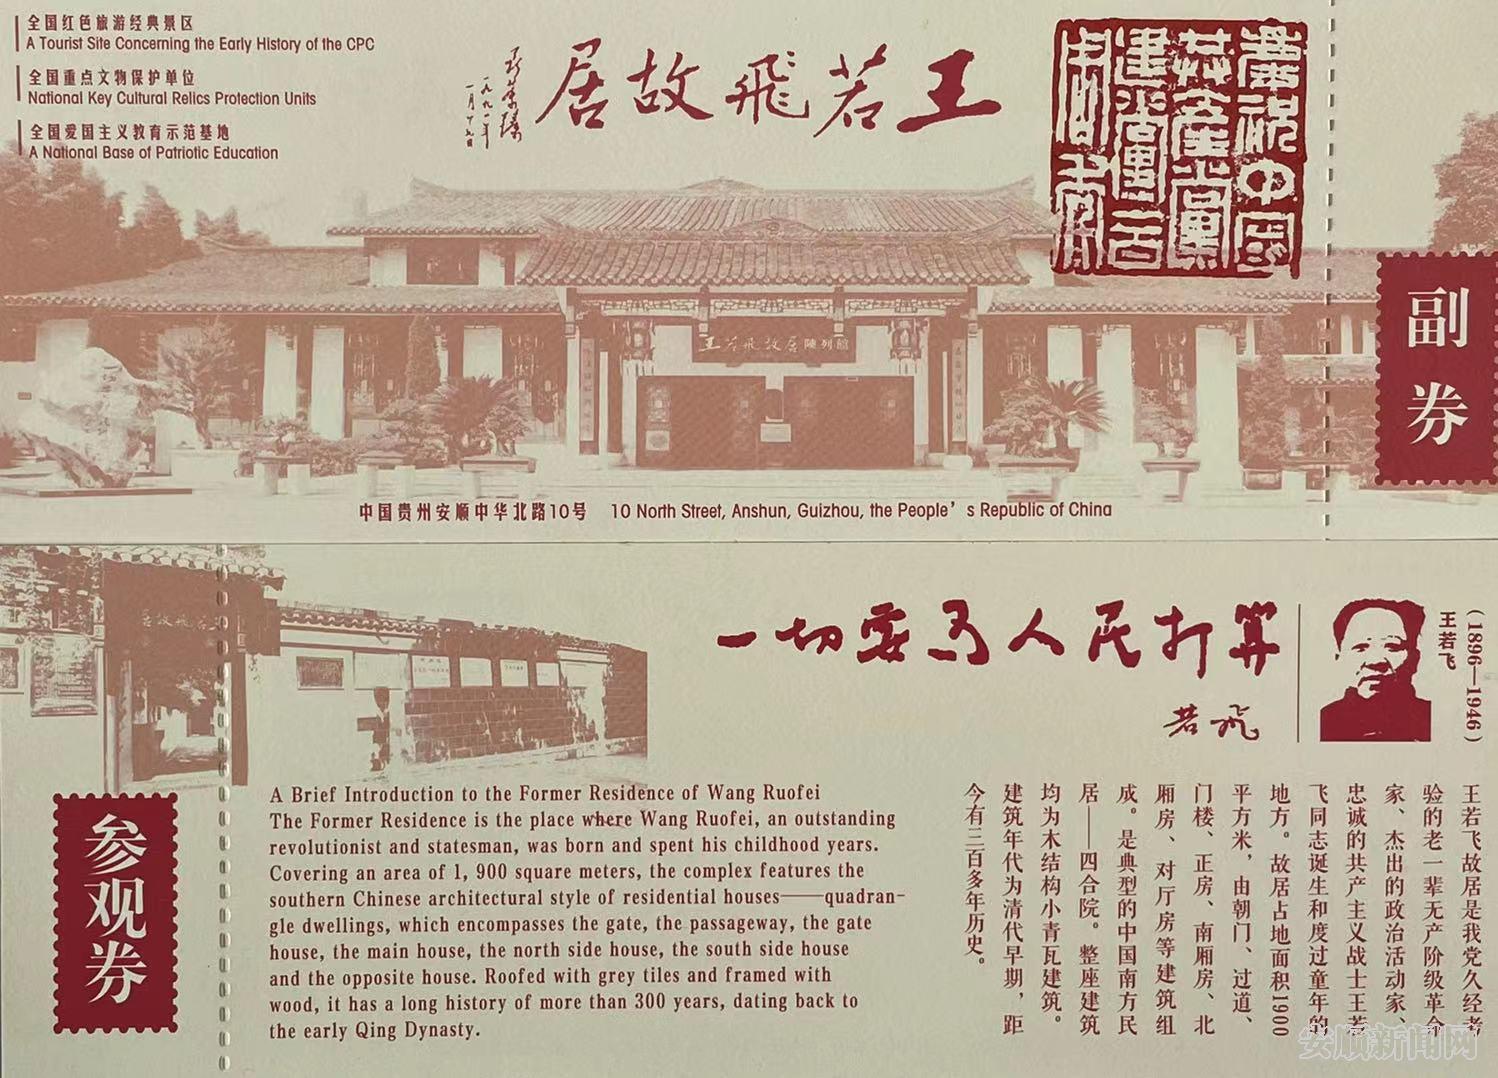 全国红色旅游经典景区
A Tourist Site Concerning the Early History of the CPC
全国重点文物保护单位
National Key Cultural Relics Protection Units
全国爱国主义教育示范基地
A National Base of Patriotic Education
王若飛故居
一九九一年
一月十九日
慶祝中國
共產黨
建党一百
周年
王若飛故居陳列館
副券
中国贵州安顺中华北路10号 10 North Street, Anshun, Guizhou, the People’s Republic of China
一切要为人民打算
若飛
王若飞
(1896—1946)
参观券
A Brief Introduction to the Former Residence of Wang Ruofei
The Former Residence is the place where Wang Ruofei, an outstanding
revolutionist and statesman, was born and spent his childhood years.
Covering an area of 1, 900 square meters, the complex features the
southern Chinese architectural style of residential houses——quadran-
gle dwellings, which encompasses the gate, the passageway, the gate
house, the main house, the north side house, the south side house
and the opposite house. Roofed with grey tiles and framed with
wood, it has a long history of more than 300 years, dating back to
the early Qing Dynasty.
王若飞故居是我党久经考
验的老一辈无产阶级革命
家、杰出的政治活动家、
忠诚的共产主义战士王若
飞同志诞生和度过童年的
地方。故居占地面积1900
平方米，由朝门、过道、
门楼、正房、南厢房、北
厢房、对厅房等建筑组
成。是典型的中国南方民
居——四合院。整座建筑
均为木结构小青瓦建筑。
建筑年代为清代早期，距
今有三百多年历史。
安顺新闻网